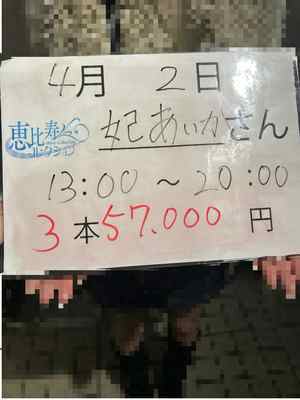 4月 2日
恵比寿
コレクション
妃あいかさん
13:00 ~ 20:00
3本57.000 円